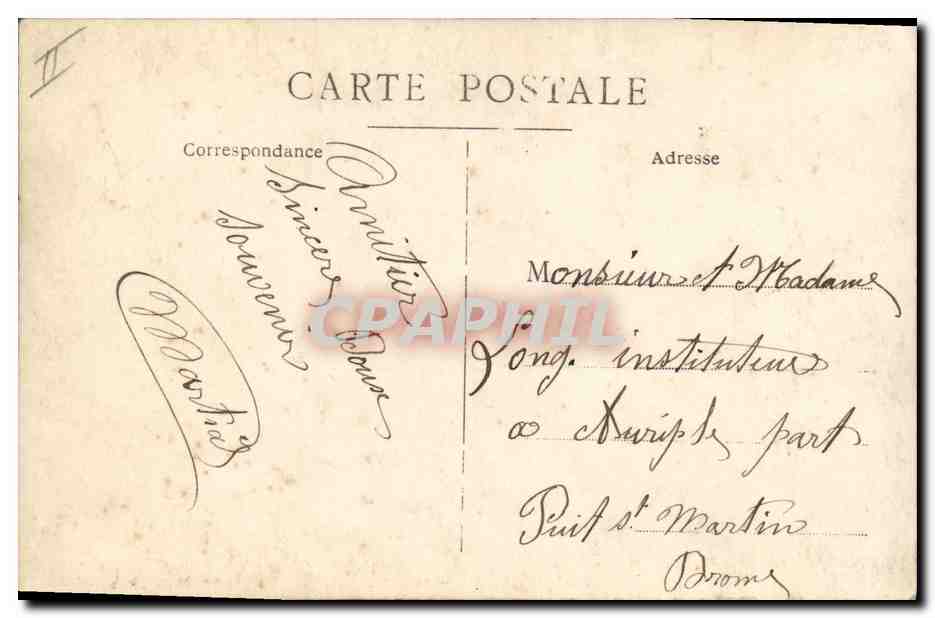 II
CARTE POSTALE
Correspondance
Adresse
Sincere Doux
Souvenir
Martial
Monsieur et Madame
Long. instituteur
a Auriple part
Puit st Martin
Drome
CPAPHIL